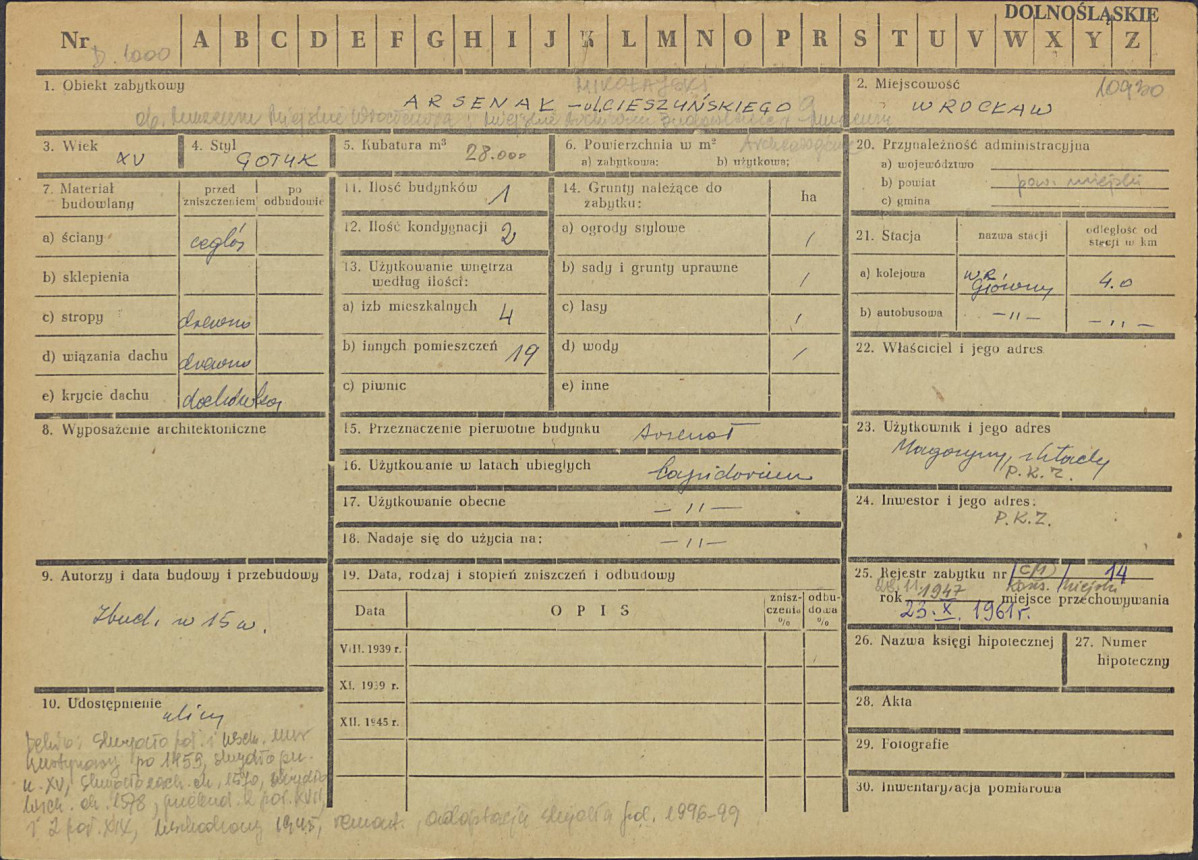 DOLNOŚLĄSKIE
Nr D. 1000 A B C D E F G H I J K L M N O P R S T U V W X Y Z
1. Obiekt zabytkowy
MIKOŁAJSKI
ARSENAŁ - ul. CIESZYŃSKIEGO 9
ob. Muzeum Miejskie Wrocławia i Miejskie Archiwum Budowlane, Muzeum
Archeologiczne
2. Miejscowość 10920
WROCŁAW
3. Wiek
XV
4. Styl
GOTYK
5. Kubatura m³
28.000
6. Powierzchnia w m²
a) zabytkowa: b) użytkowa;
20. Przynależność administracyjna
a) województwo
b) powiat pow. miejski
c) gmina
7. Materiał budowlany
przed zniszczeniem
po odbudowie
a) ściany cegła
b) sklepienia
c) stropy drewno
d) wiązania dachu drewno
e) krycie dachu dachówka
8. Wyposażenie architektoniczne
9. Autorzy i data budowy i przebudowy
Zbud. w 15 w.
10. Udostępnienie
ulicy
skrzydło płd. i wsch. mur
kurtynowy po 1453, skrzydło pn.
k. XV, skrzydło zach. ok. 1570, skrzydło
wsch. ok. 1578, przebud. 2 poł. XVII
i 2 poł. XIX, uszkodzony 1945, remont, adaptacja skrzydła płd. 1996-99
11. Ilość budynków 1
12. Ilość kondygnacji 2
13. Użytkowanie wnętrza
według ilości:
a) izb mieszkalnych 4
b) innych pomieszczeń 19
c) piwnic
14. Grunty należące do
zabytku:
ha
a) ogrody stylowe /
b) sady i grunty uprawne /
c) lasy /
d) wody /
e) inne
15. Przeznaczenie pierwotne budynku Arsenał
16. Użytkowanie w latach ubiegłych Lapidarium
17. Użytkowanie obecne — 〃 —
18. Nadaje się do użycia na: — 〃 —
19. Data, rodzaj i stopień zniszczeń i odbudowy
Data
OPIS
znisz-
czenia
%
odbu-
dowa
%
VIII. 1939 r.
XI. 1939 r.
XII. 1945 r.
21. Stacja
nazwa stacji
odległość od
stacji w km
a) kolejowa WR. Główny 4.0
b) autobusowa — 〃 — — 〃 —
22. Właściciel i jego adres
23. Użytkownik i jego adres
Magazyny, składy
P.K.Z.
24. Inwestor i jego adres:
P.K.Z.
25. Rejestr zabytku nr 14
Kons. Miejski
rok 28.11.1947 miejsce przechowywania
23. X. 1961 r.
26. Nazwa księgi hipotecznej
27. Numer
hipoteczny
28. Akta
29. Fotografie
30. Inwentaryzacja pomiarowa